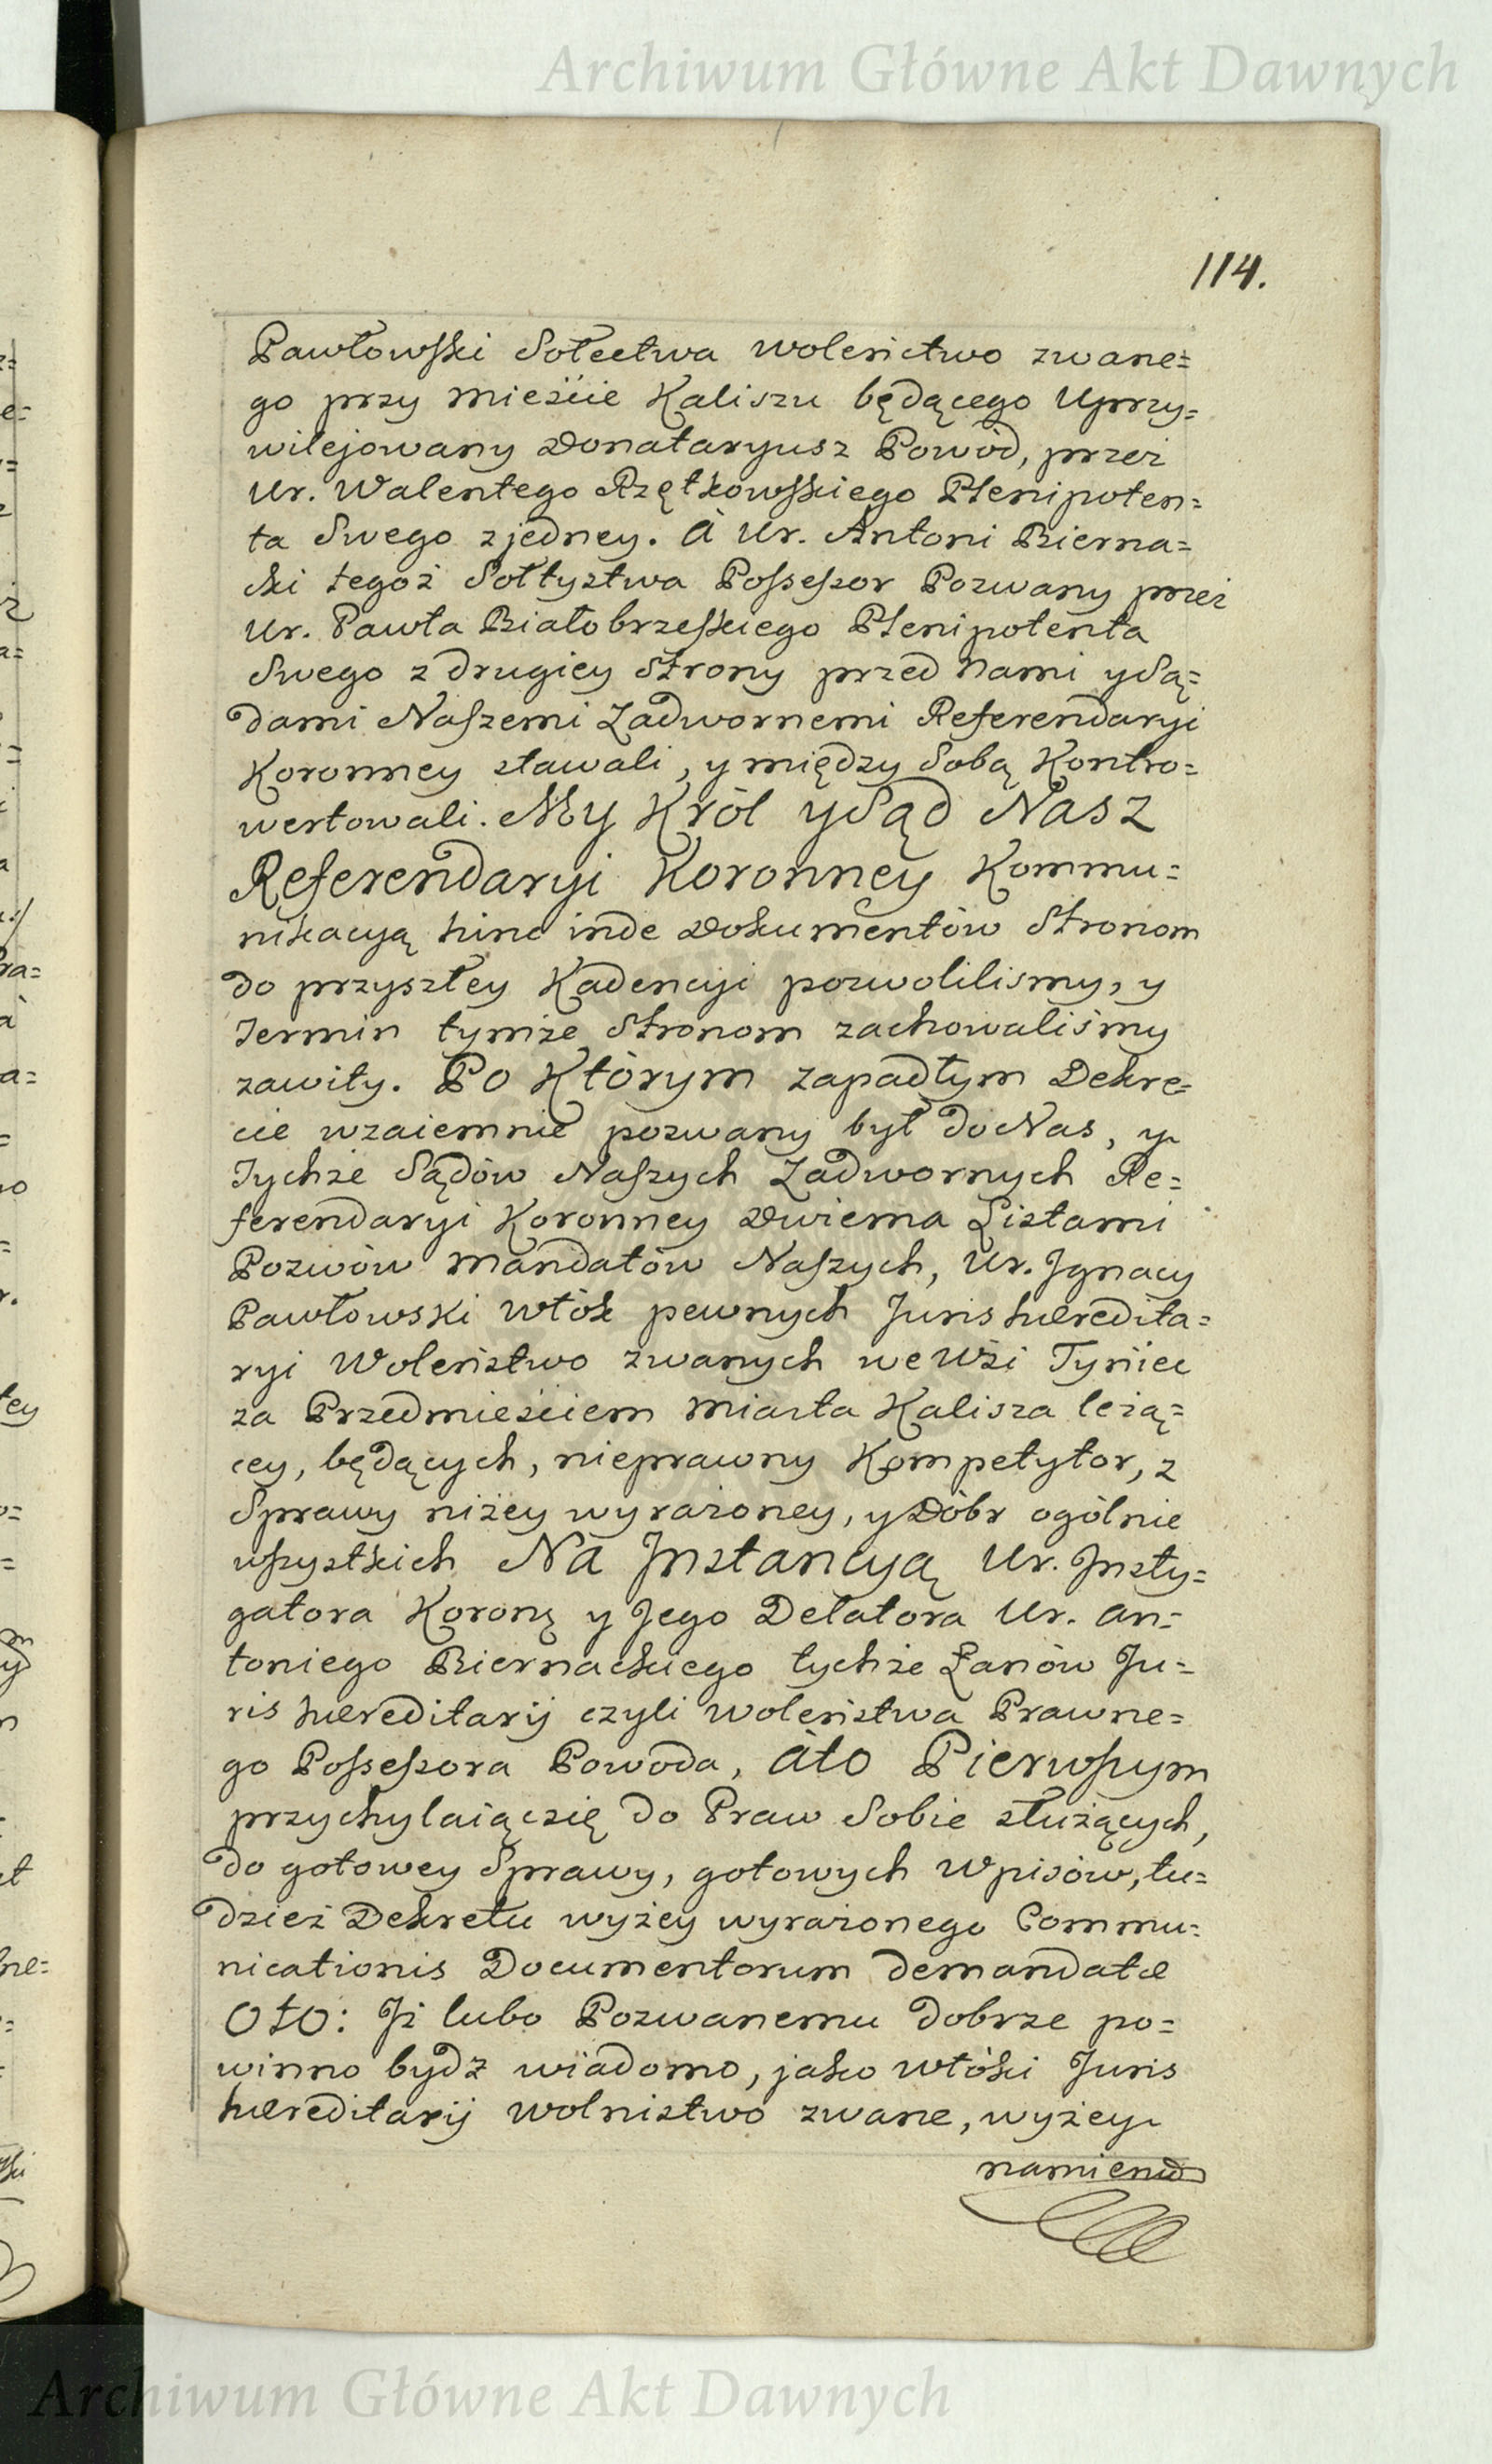 Archiwum Główne Akt Dawnych
114.
Pawłowski Sołectwa wolenictwo zwane=
go przy mieście Kaliszu będącego Uprzy=
wilejowany Donataryusz Powód, przez
Ur. Walentego Rzętkowskiego Plenipoten=
ta Swego z jedney. à Ur. Antoni Bierna=
cki tegoż Sołtystwa Possessor Pozwany przez
Ur. Pawła Białobrzeskiego Plenipotenta
Swego z drugiey Strony przed Nami y Są=
dami Naszemi Zadwornemi Referendaryi
Koronney stawali, y między Sobą Kontro=
wertowali. My Król y Sąd Nasz
Referendaryi Koronney Kommu=
nikacyą hinc inde Dokumentów Stronom
do przyszłey Kadencyi pozwolilismy, y
Termin tymże Stronom zachowaliśmy
zawity. Po Którym zapadłym Dekre=
cie wzaiemnie pozwany był do Nas, y
Tychże Sądów Naszych Zadwornych Re=
ferendaryi Koronney Dwiema Listami
Pozwów Mandatów Naszych, Ur. Jgnacy
Pawłowski włók pewnych Juris hæredita=
ryi Woleństwo zwanych we Wsi Tyniec
za Przedmieściem Miasta Kalisza leżą=
cey, będących, nieprawny Kompetytor, z
Sprawy niżey wyrażoney, y Dóbr ogólnie
wszystkich Na Jnstancyą Ur. Jnsty=
gatora Korony y Jego Delatora Ur. An=
toniego Biernackiego tychże Łanów Ju=
ris hæreditarij czyli woleństwa Prawne=
go Possessora Powoda, àto Pierwszym
przychylaiąc się do Praw Sobie służących,
do gotowey Sprawy, gotowych Wpisów, tu=
dzież Dekretu wyżey wyrażonego Commu=
nicationis Documentorum demandatæ
Oto: Jż lubo Pozwanemu dobrze po=
winno bydź wiadomo, jako włóki Juris
hæreditarij wolnistwo zwane, wyżey
namienio
Archiwum Główne Akt Dawnych